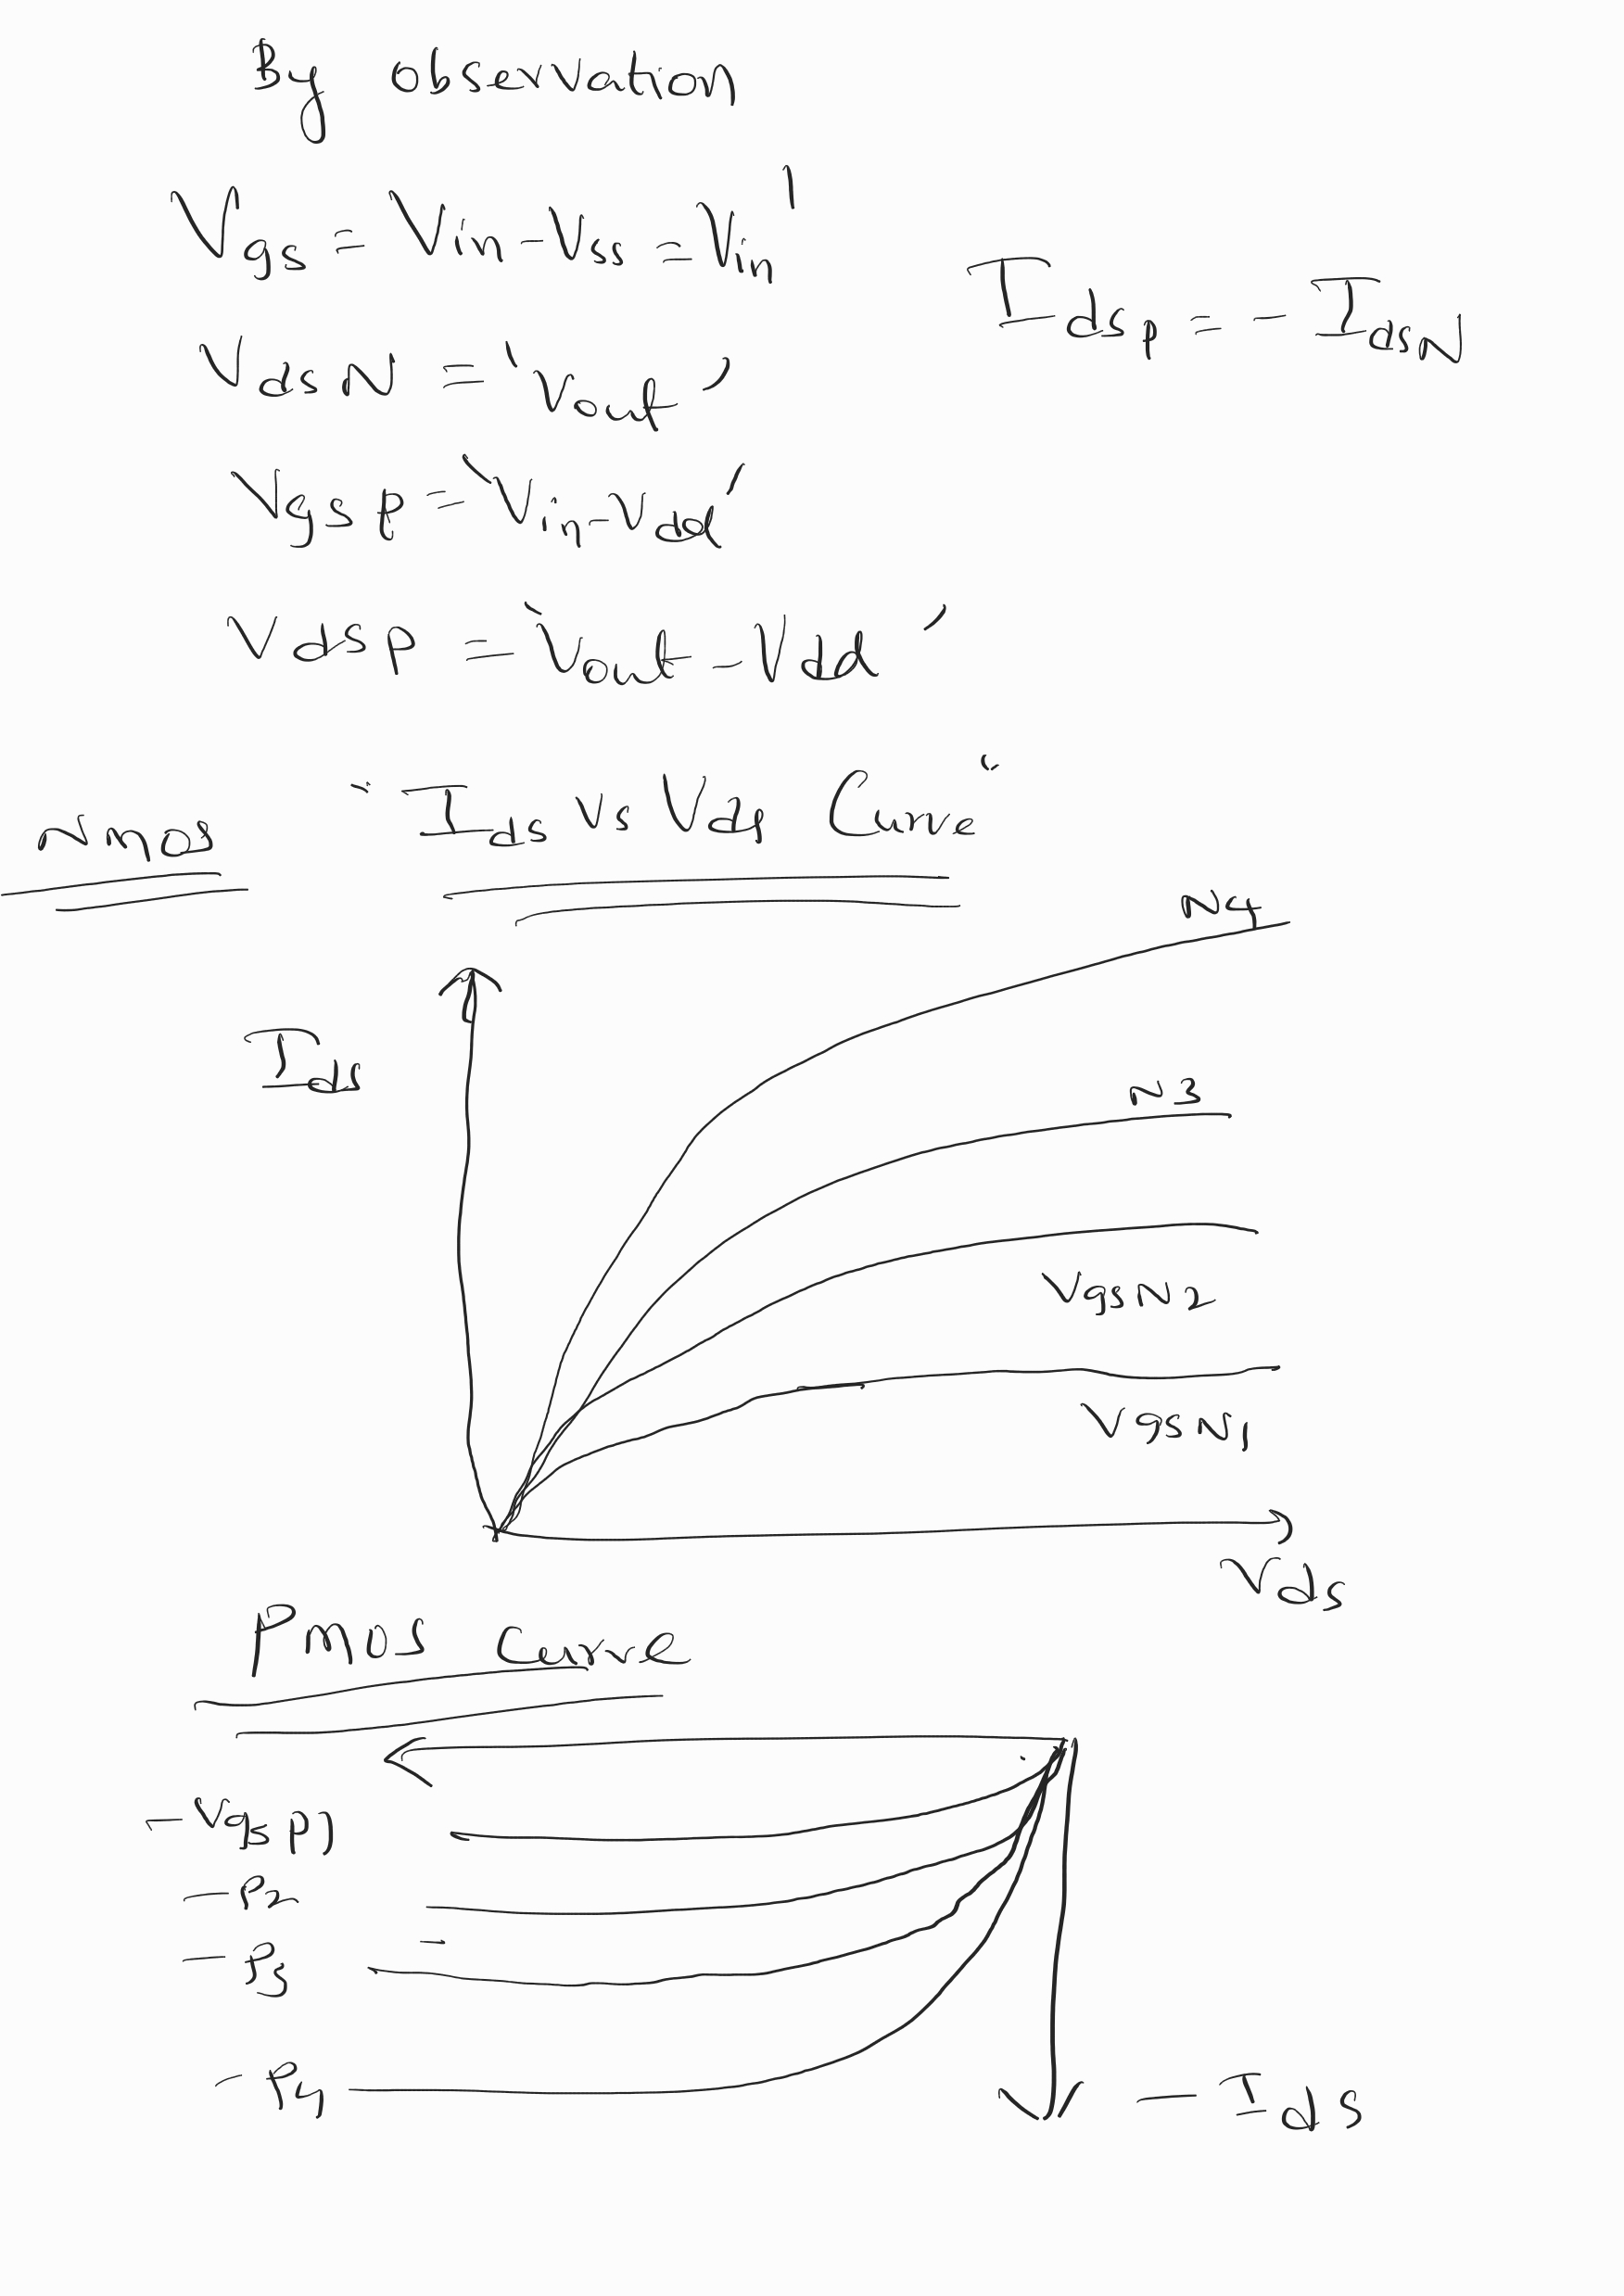 By observation
Vgs = Vin-Vss = Vin'
Idsp = - IdsN
VdsN = 'Vout'
Vgsp = 'Vin-Vdd'
Vdsp = 'Vout-Vdd'
Nmos
"Ids vs Vds Curve"
N4
Ids
N3
VgsN2
VgsN1
Vds
PMOS Curve
-Vgsp1
-P2
-P3
-P4
-Ids